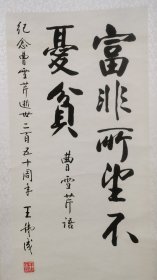 富非所望不
憂貧
曹雪芹語
紀念曹雪芹逝世二百五十周年